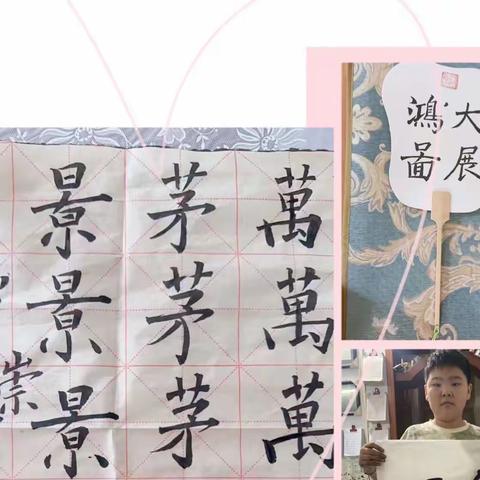 萬萬萬
茅茅茅
景景景
崇
大展
鴻圖